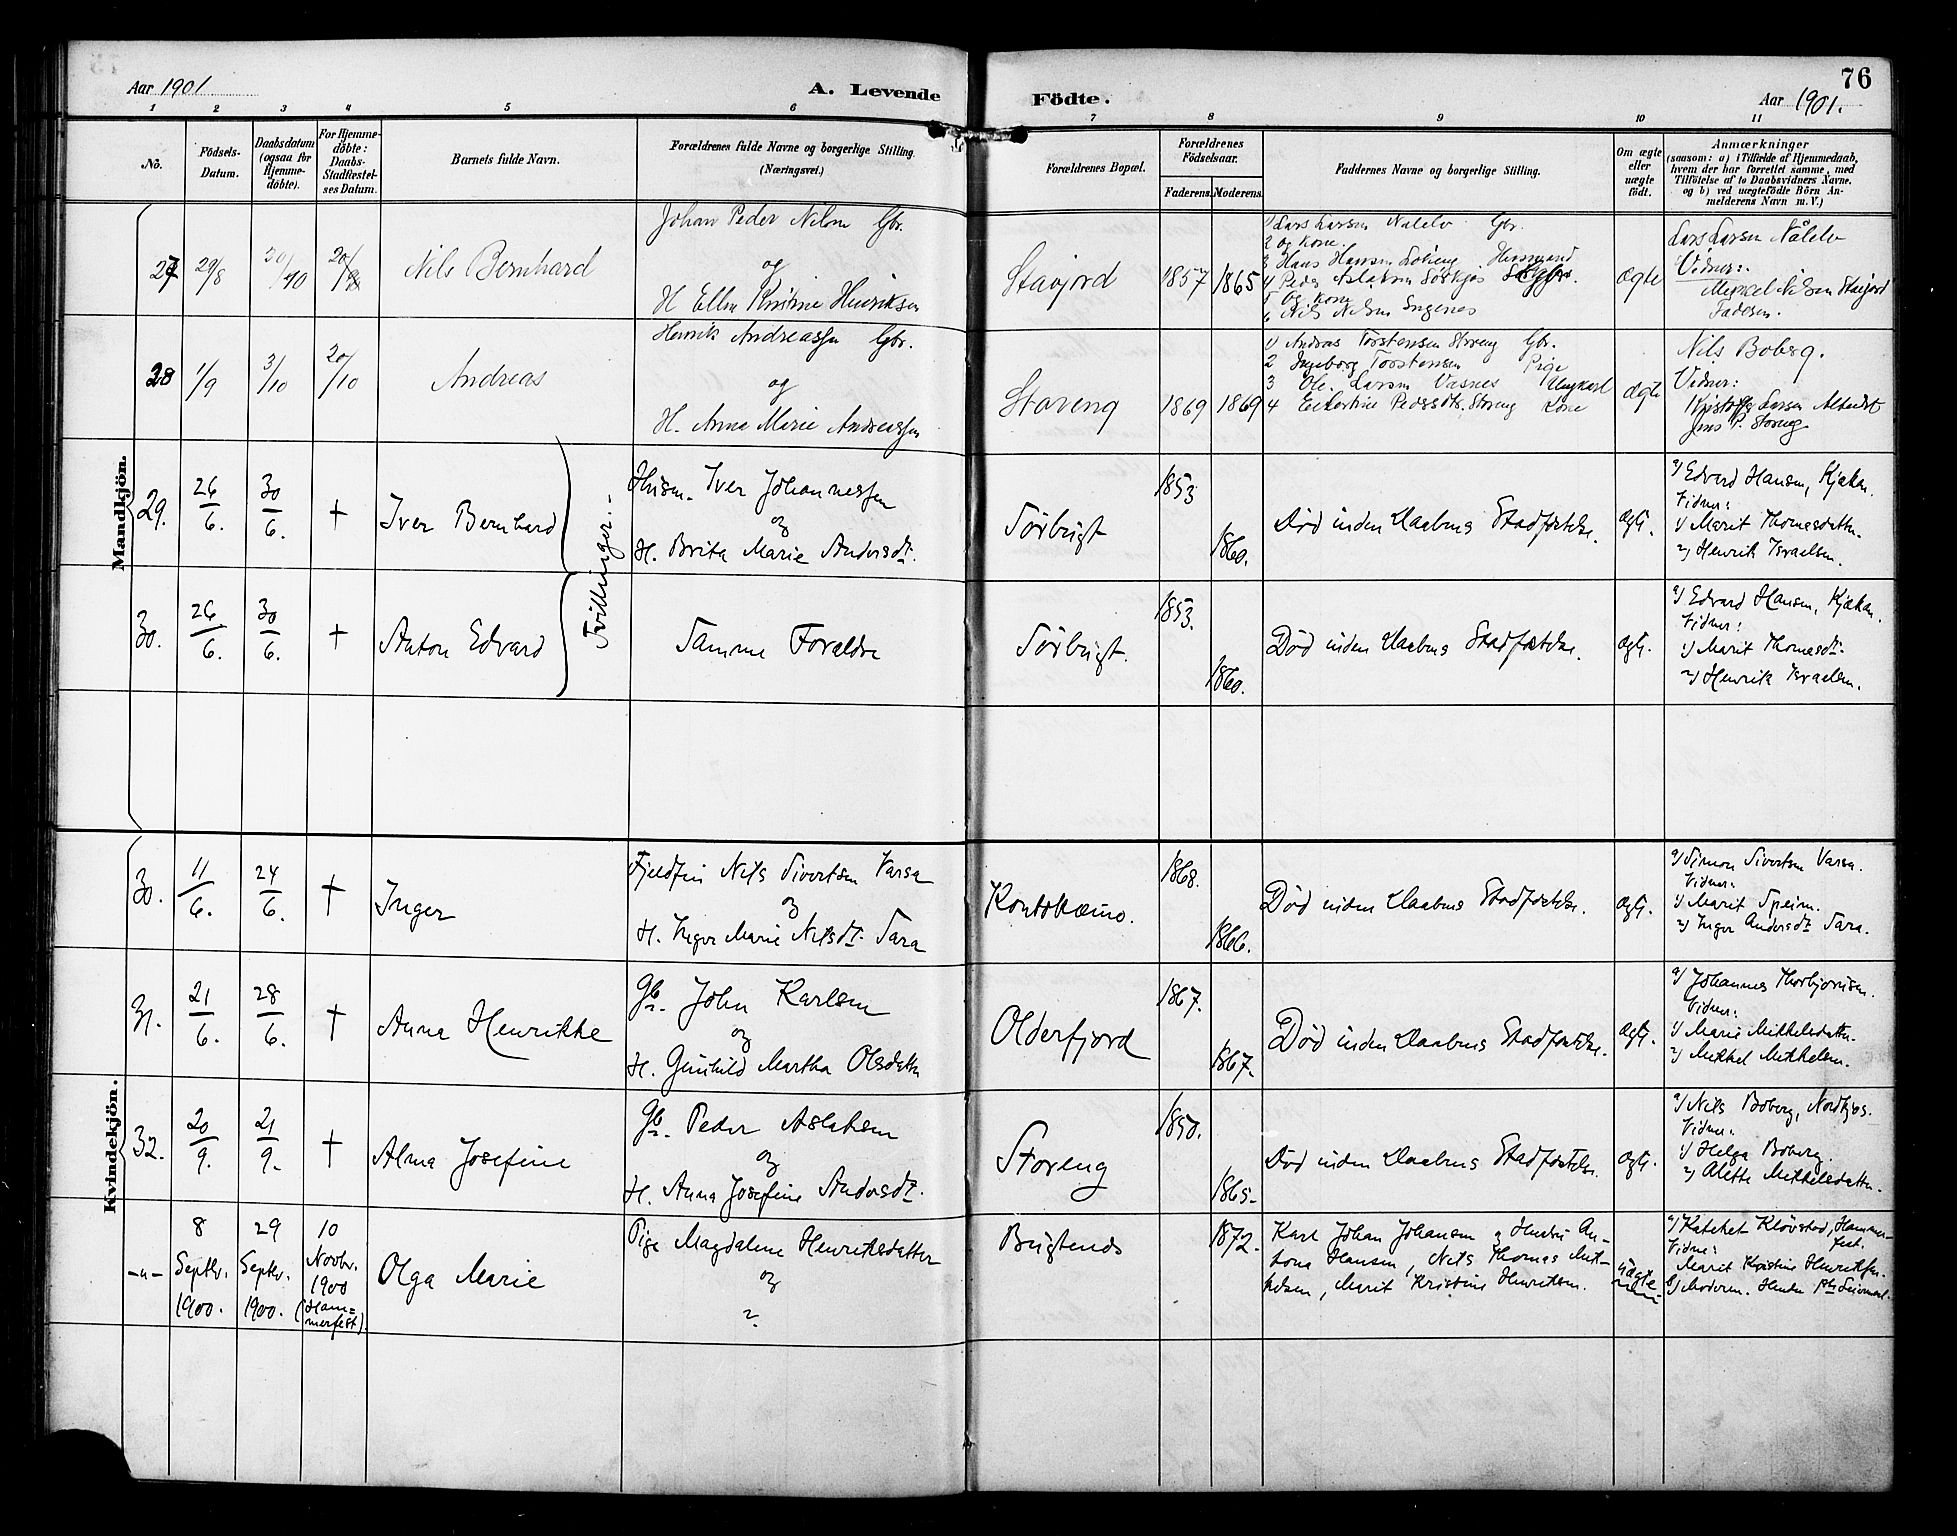 76
Aar 1901.
A. Levende Födte.
Aar 1901.
1 2 3 4 5 6 7 8 9 10 11
No.
Födsels-
Datum.
Daabsdatum
(ogsaa for
Hjemme-
döbte).
For Hjemme-
döbte:
Daabs-
Stadfæstel-
ses Datum.
Barnets fulde Navn.
Forældrenes fulde Navne og borgerlige Stilling.
(Næringsvei.)
Forældrenes Bopæl.
Forældrenes
Födselsaar.
Faderens. Moderens.
Faddernes Navne og borgerlige Stilling.
Om ægte
eller
uægte
födt.
Anmærkninger
(saasom: a) i Tilfælde af Hjemmedaab,
hvem der har forrettet samme, med
Tilföielse af to Daabsvidners Navne.
og b) ved uægtefödte Börn An-
melderens Navn m. V.)
Mandkjön.
27
29/8
20/
Nils Bernhard
Johan Peder Nilsen Gbr.
og
H. Ellen Kristine Henriksen
Staijord
1857
1865
1) Lars Larsen Nalelv Gbr.
2 og kone.
3 Hans Hansen Husmand
4 Peder Aslaksen Sörkjos
5 og kone
6 Nils Nilsen
Ægte
Lars Larsen Nålelv
Vidner:
Nilsen Staijord
28
1/9
3/10
20/10
Andreas
Henrik Andreassen Gbr.
og
H. Anna Marie Andreassen
Storeng
1869
1869
1) Andras Torstensen Storeng Gbr.
2 Ingeborg Torstensen Pige
3 Ole Larsen Vasnes Ungkarl
4 Pedersdt. Storeng Kone
Ægte
Nils Boberg.
Vidner:
Kristoffer Larsen
Jens P. Storeng
29.
26/6.
30/6.
†
Iver Bernhard
Tvillinger.
Husm. Iver Johannessen
og
H. Brita Marie Andersdt.
Sörbugt
1853
1860.
Död inden Daabens Stadfæstelse.
Ægt.
a) Edvard Hansen, Kjækan.
Vidner:
1) Marit Thomasdatter.
2) Henrik Israelsen.
30.
26/6.
30/6.
†
Anton Edvard
Samme Forældre
Sörbugt.
1853.
1860.
Död inden Daabens Stadfæstelse.
Ægt.
a) Edvard Hansen, Kjækan.
Vidner:
1) Marit Thomasdt.
2) Henrik Israelsen.
Kvindekjön.
30.
11/6.
24/6.
†
Inger
Fjeldfin Nils Sivertsen Varsa
og
H. Inger Marie Nilsdt. Sara
Kontokæino.
1868.
1866.
Död inden Daabens Stadfæstelse.
Ægt.
a) Simon Sivertsen Varsa.
Vidner:
1) Marit Spein.
2) Inger Andersdt. Sara.
31.
21/6.
28/6.
†
Anna Henrikke
Gbr. John Karlsen
og
H. Gunhild Martha Olsdatter
Olderfjord
1867.
1867.
Död inden Daabens Stadfæstelse.
Ægt.
a) Johannes Thorbjørnsen.
Vidner:
1) Marie Mikkelsdatter.
2) Mikkel Mikkelsen.
32.
20/9.
21/9.
†
Alma Josefine
Gbr. Peder Aslaksen
og
H. Anna Josefine Andersdt.
Storeng
1850.
1865.
Död inden Daabens Stadfæstelse.
Ægt.
a) Nils Boberg, Nordkjos.
Vidner:
1) Helga Boberg.
2) Alette Mikkelsdatter.
-„-
8
Septbr.
1900.
29
Septbr.
1900.
10
Novbr.
1900
(Ham=
merfest).
Olga Marie
Pige Magdalene Henriksdatter
og
?
Bugtenes
1872.
Karl Johan Johansen, Hustru An-
tona Hansen, Nils Thomas Mik-
kelsen, Marit Kristine Henriksen.
uægte
a) Kateket Klövstad, Hammer-
fest.
Vidne:
Marit Kristine Henriksen.
b) Moderen.